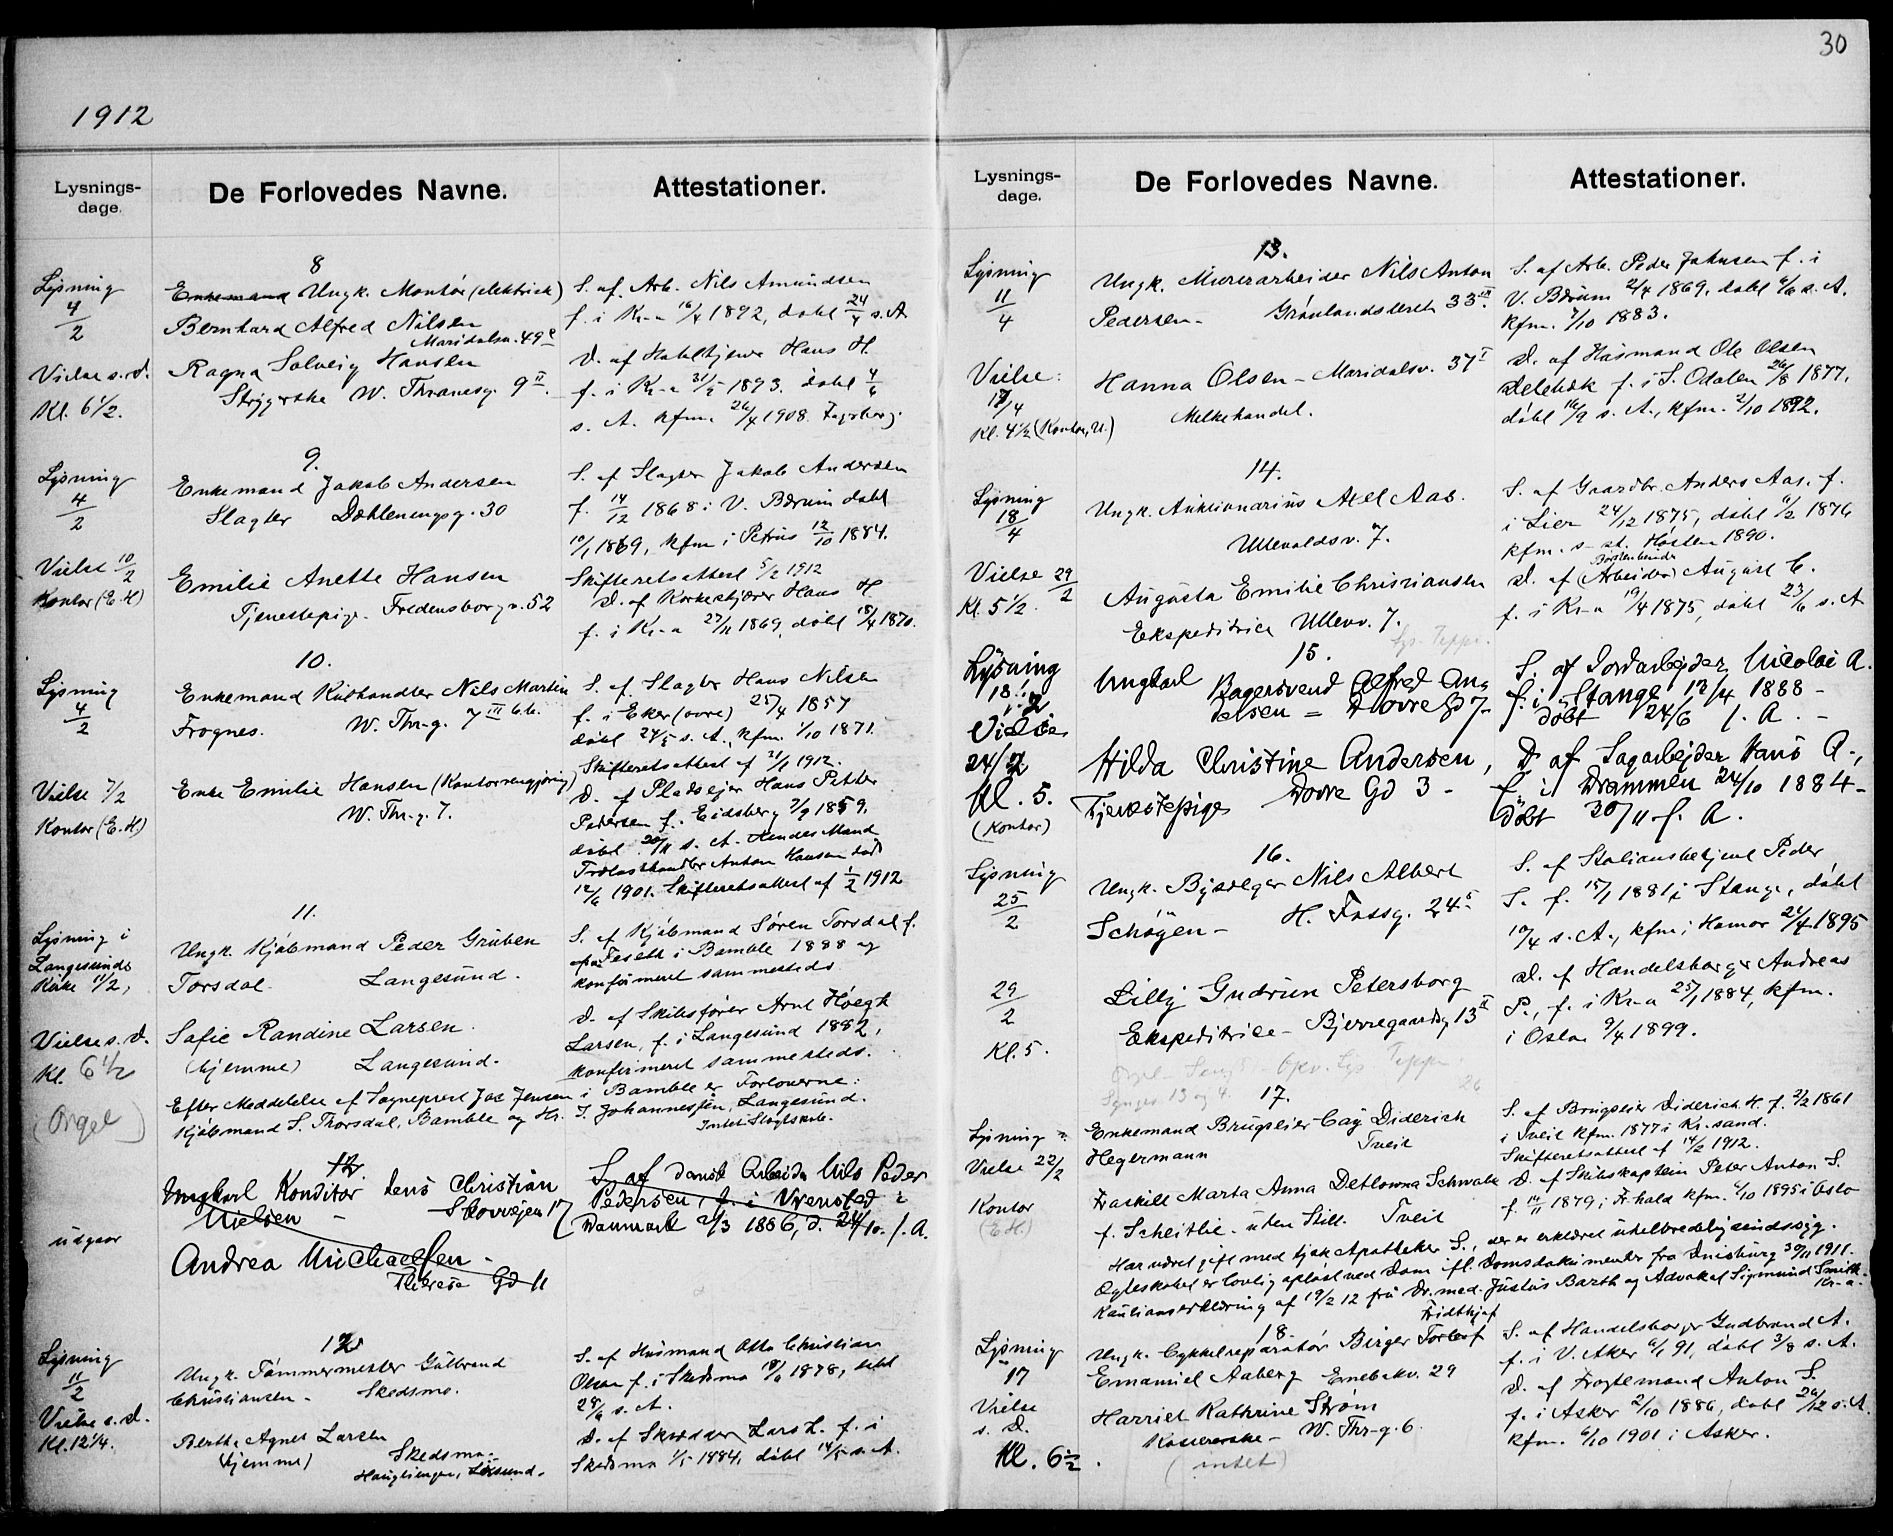 30
1912
Lysnings-
dage.
De Forlovedes Navne.
Attestationer.
8
Lysning
4/2
Vielse s. d.
Kl. 6 1/2.
Enkemand Ungk. Montör (elektrisk)
Bernhard Alfred Nilsen
Maridalsv. 49
Ragna Solveig Hansen
Strygerske W. Thranesg. 9 II
S. af Arb. Nils Amundsen
f. i Kr-a 1892, döbt 24/4 s. A
D. af Hans H.
f. i Kr-a 31/5 1893. döbt 4/6
s. A. kfm. 26/4 1908. Fagerborg.
9.
Lysning
4/2
Vielse 10/2
Kontor (E. H)
Enkemand Jakob Andersen
Slagter Dælenengg. 30
Emilie Anette Hansen
Tjenestepige. Fredensborgv. 52
S. af Slagter Jakob Andersen
f. 14/12 1868 i V. Bærum döbt
10/1 1869, kfm i Petrus 12/10 1884.
Skifteretsattest 5/2 1912
D. af Hans H
f. i Kr-a 27/11 1869, döbt 18/4 1870.
10.
Lysning
4/2
Vielse 7/2
Kontor (E. H)
Enkemand Kulhandler Nils Martin
Frognes. W. Thr-g. 7 III
Enke Emilie Hansen (Kontorrengjöring)
W. Thr-g. 7.
S. af Slagter Hans Nilsen
f. i Eker (övre) 25/4 1857
döbt 24/5 s. A., kfm. 1/10 1871.
Skifteretsattest af 31/1 1912.
D. af Pladsejer Hans Petter
Pedersen f. Eidsberg 7/9 1859.
döbt 20/11 s. A. Hendes Mand
Trælasthandler Anton Hansen död
12/6 1901. Skifteretsattest af 1/2 1912
11.
Lysning i
Langesunds
Kirke 11/2,
Vielse s. d.
Kl. 6 1/2
(Orgel)
Ungk. Kjöbmand Peder Gruben
Torsdal. Langesund.
Sofie Randine Larsen.
(hjemme) Langesund.
S. af Kjöbmand Sören Torsdal f.
i Bamble 1888 og
konfirmeret sammesteds
D. af Skibsförer Arnt Höegh
Larsen, f. i Langesund 1882,
konfirmeret sammesteds.
Efter Meddelelse af Sogneprest Jac Jensen i Bamble er Forloverne:
Kjöbmand S. Thorsdal, Bamble og Hr. J. Johannessen, Langesund.
Intet Slægtskab.
12.
udgaar
Ungkarl Konditor Jens Christian
Nielsen - Skovvejen 17
Andrea Michaelsen -
Therese Gd 11
S. af dansk Arbeider Nils Peder
Pedersen, f. i Vrensted i
Danmark 2/3 1886, d. 24/10. s. A.
12
Lysning
11/2
Vielse s. d.
Kl. 12 1/4.
Ungk. Tömmermester Gulbrand
Christiansen - Skedsmo.
Berthe Agnes Larsen
(hjemme) Skedsmo.
S. af Husmand Otto Christian
Olsen f. i Skedsmo 1878, döbt
s. A.
D. af Skrædder Lars L. f. i
Skedsmo 1/5 1884, döbt 14/5 s. A.
Lysnings-
dage.
De Forlovedes Navne.
Attestationer.
13.
Lysning
11/4
Vielse:
17/4
Kl. 4 1/2 (Kontor, U.)
Ungk. Murerarbeider Nils Anton
Pedersen - Grönlandsleret 33 III
Hanna Olsen - Maridalsv. 37 I
Melkehandel.
S. af Arb. Peder Johnsen f. i
V. Bærum 2/4 1869, döbt 6/6 s. A.
kfm. 7/10 1883.
D. af Husmand Ole Olsen
f. i S. Odalen 26/8 1877.
döbt 16/9 s. A., kfm. 2/10 1892.
14.
Lysning
18/4
Vielse 29/2
Kl. 5 1/2.
Ungk. Auktionarius Axel Aas.
Ullevoldsv. 7.
Augusta Emilie Christiansen
Ekspeditrice Ullevv. 7.
S. af Gaardbr. Anders Aas. f.
i Lier 24/12 1875, döbt 6/2 1876
kfm. s. st. Hösten 1890.
Börstenbinder
D. af (Arbeider) August C.
f. i Kr-a 19/4 1875, döbt 23/6 s. A
15.
Lysning
18/2
Vielse
24/2
Kl. 5.
(Kontor)
Ungkarl Bagersvend Alfred Ang
delsen = Dovre Gd 7 -
Hilda Christine Andersen,
Tjenestepige Dovre Gd 3 -
S. af Jordarbejder Nicolai A.
f. i Stange 12/4 1888 -
döbt 24/6 s. A. -
D. af Sagarbejder Hans A.,
f. i Drammen 24/10 1884 -
döbt 30/11 s. A.
16.
Lysning
25/2
29/2
Kl. 5.
Ungk. Nils Albert
Schöyen - H. Fossg. 24
Lilly Gudrun Petersborg
Ekspeditrice - Bjerregaardsg. 13 II
S. af Stationsbetjent Peder
S. f. 15/1 1881 i Stange, döbt
10/4 s. A., kfm. i Hamar 1895
D. af Handelsborger Andreas
P., f. i Kr-a 25/1 1884, kfm.
i Oslo 9/4 1899.
17.
Lysning
Vielse 22/2
Kontor
(E. H.)
Enkemand Brugseier Cay Diderich
Hegermann Tveit
Fraskilt Marta Anna Detlowna Schwabe
f. Scheitlie - uden Still. Tveit
S. af Brugseier Diderich H. f. 2/2 1861
i Tveit kfm. 1877 i Kr.sand.
Skifteretsattest af 14/2 1912.
D. af Skibskaptein Peter Anton S.
f. 1879 i Fr.hald kfm. 6/10 1895 i Oslo
Har været gift med tysk Apotheker S., der er erklæret uhelbredelig sindssyg.
Ægteskabet er lovlig oplöst ved Dom ifl. Domsdokumenter fra Duisburg 30/11 1911.
Kautionserklæring af 19/2 12 fra Dr. med. Justus Barth og Advokat Sigmund Smith
Kr-a.
18.
Lysning
17
Vielse
s. D.
Kl. 6 1/2.
Fridthjof
Ungk. Cykkelreparatör Birger Torleif
Emanuel Aaberg Enebakv. 29
Harriet Kathrine Ström
Kassererske - W. Thr-g. 6.
(intet)
S. af Handelsborger Gudbrand A.
f. i V. Aker 6/1 91, döbt 3/8 s. A.
D. af Frogtemand Anton S.
f. i Asker 2/10 1886, döbt 26/12 s. A.
kfm. 6/10 1901 i Asker.